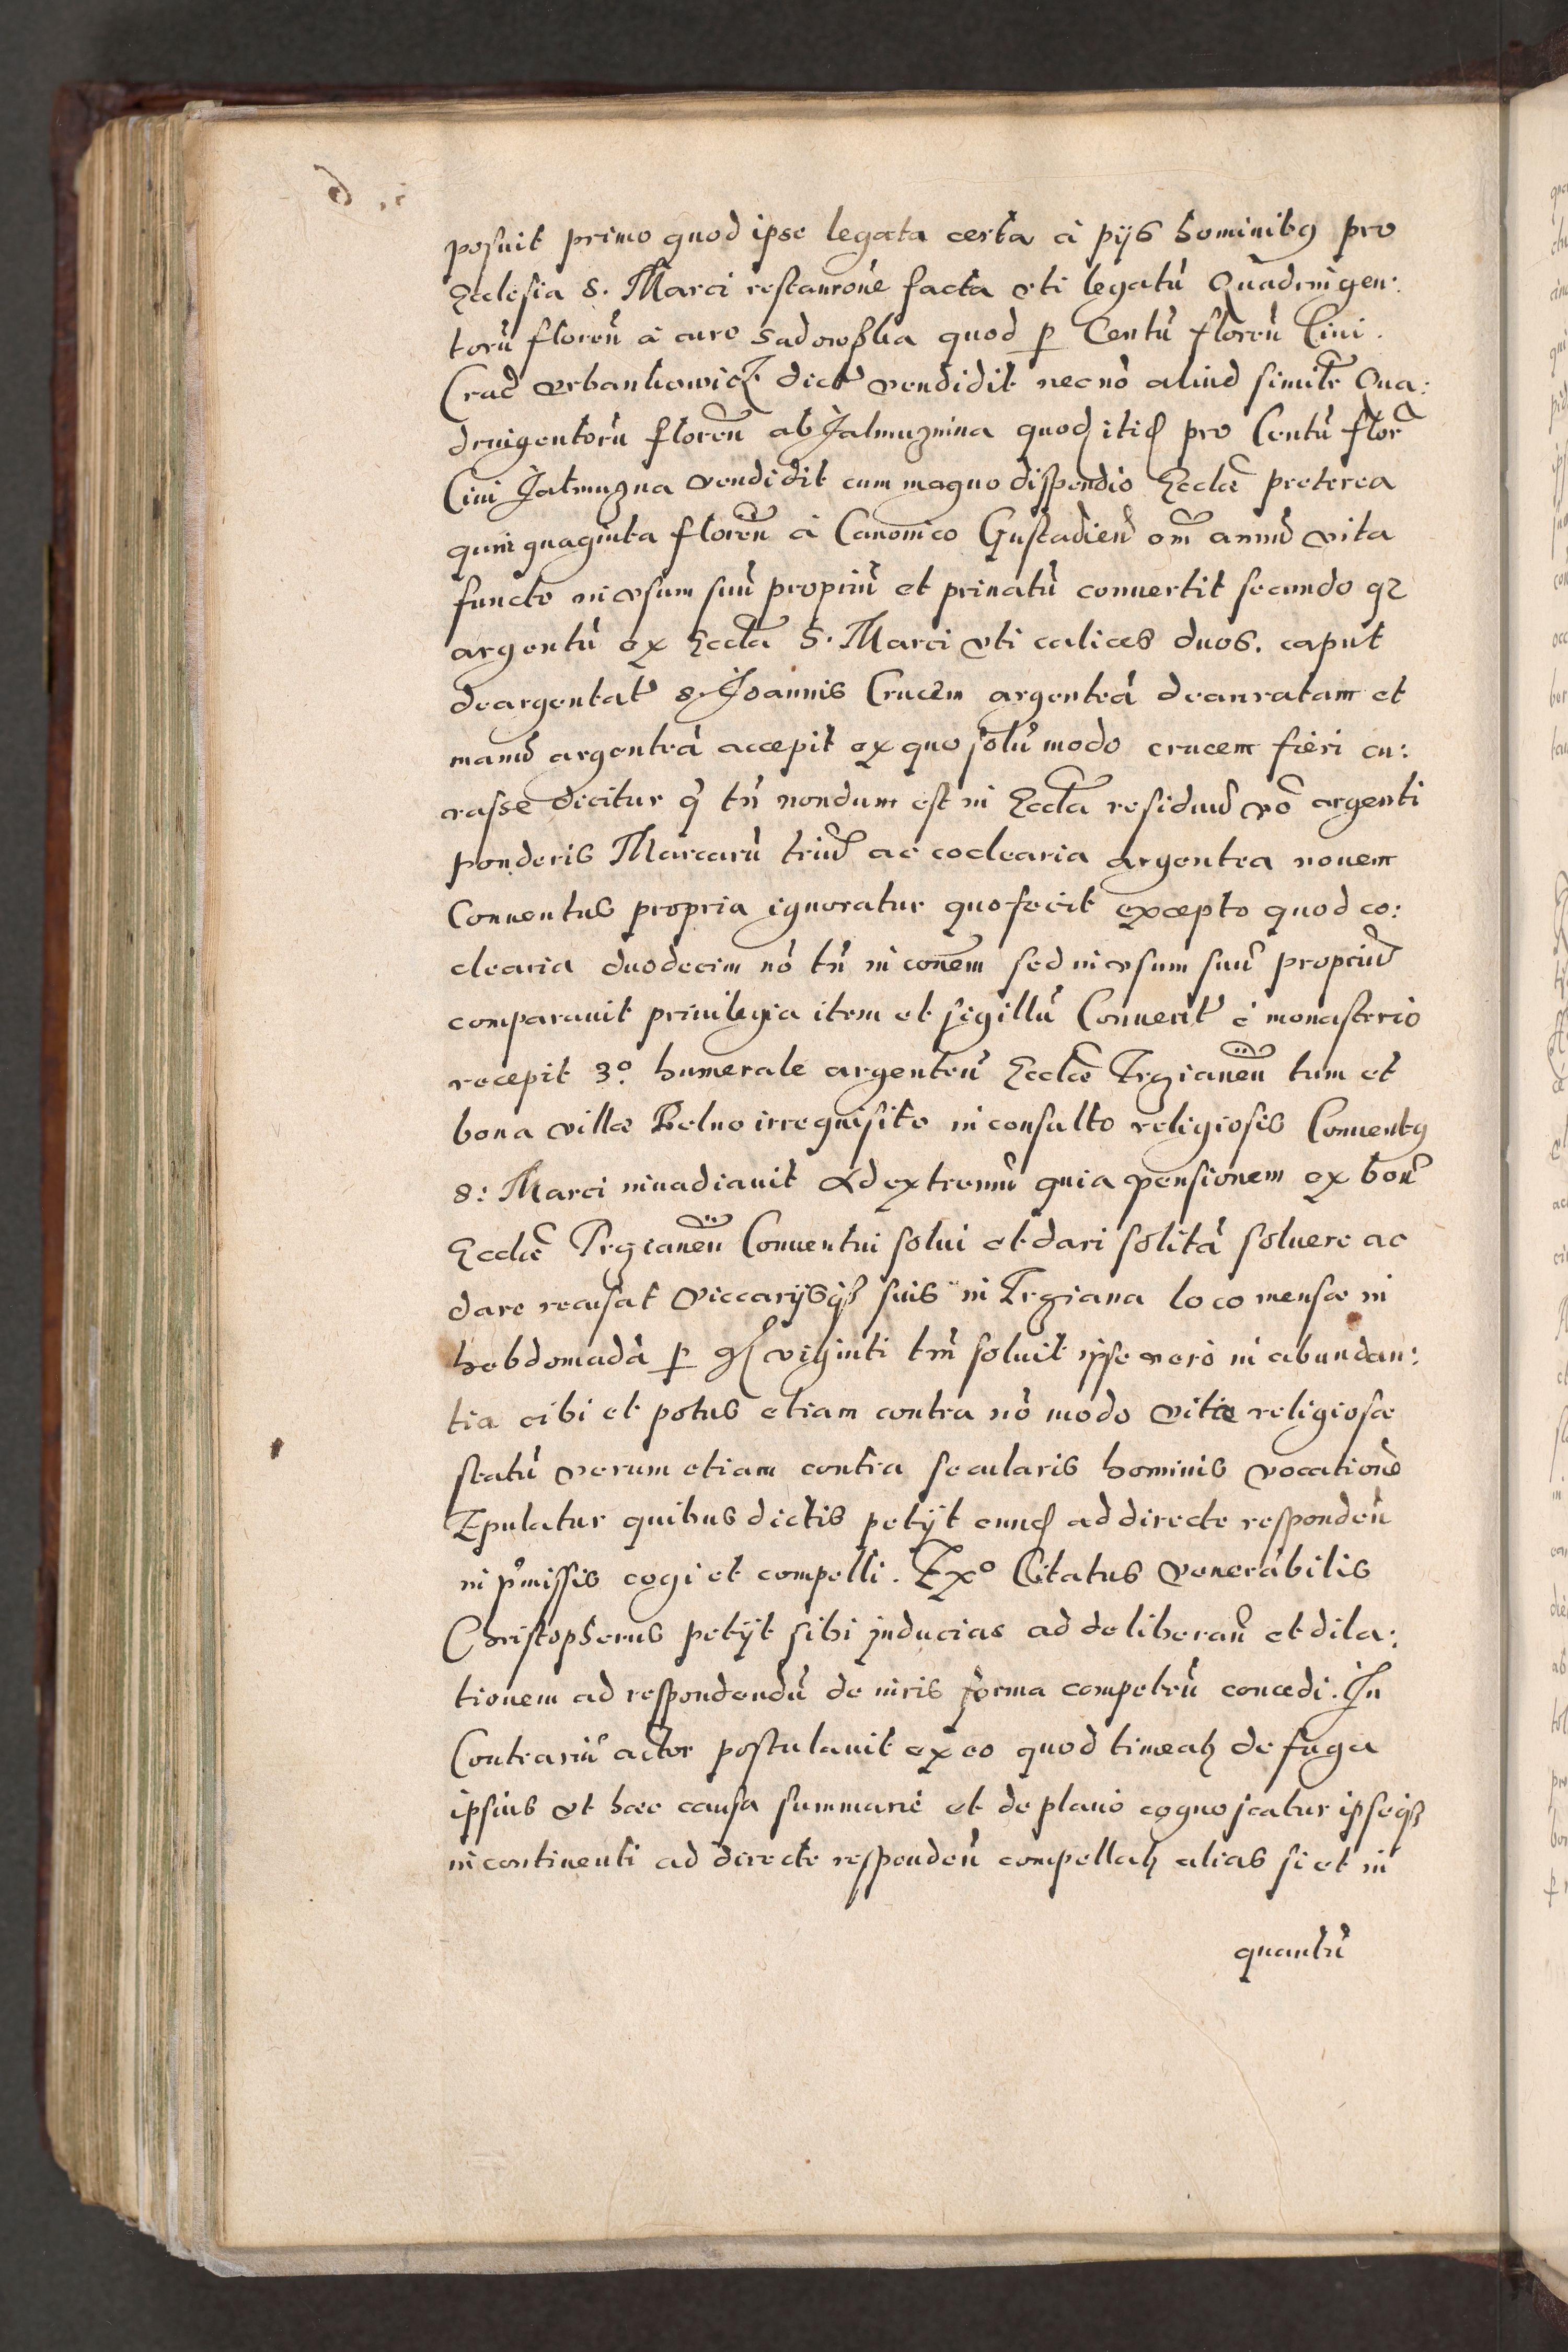 posuit primo quod ipse legata certa à pijs hominibꝯ pro
Ecclesia S. Marci restaurõne facta vti legatũ Quadringen:
torũ floreñ à cure Sadowska quod ꝑ Centũ floreñ Ciui.
Crac̃ Vrbankowicz dict̃ vendidit necnõ aliud simile Qua:
dringentorũ floreñ ab Jalmuznina quod itid̃ pro Centũ flor̃
Ciui Jalmuzna vendidit cum magno dispendio Eccl̃æ preterea
quinquaginta floreñ à Canonico Gustadieñ om̃ annũ vita
functo in vsum suũ propriũ et priuatũ conuertit secundo qꝫ
argentũ ex Eccl̃a S. Marci vti calices duos. caput
deargentat̃ S. Joannis Crucem argenteã deauratam et
manũ argenteã accepit ex quo solũ modo crucem fieri cu:
rasse dicitur q̃ tñ nondum est in Eccl̃a residuũ võ argenti
ponderis Marcarũ triũ ac coclearia argentea nouem
Conuentus propria ignoratur quo fecit excepto quod co:
clearia duodecim nõ tñ in cõnem sed in vsum suũ propriũ
comparauit priuilegia item et sigillũ Conuent̃ è monasterio
recepit 3º. humerale argenteũ Eccl̃æ Trzcianeñ tum et
bona villæ Belno irrequisito inconsulto religiosis Conuentꝯ
S: Marci inuadiauit Ad extremũ quia pensionem ex boñ
Eccl̃æ Trzcianeñ Conuentui solui et dari solitã soluere ac
dare recusat Viccarijsqꝫ suis in Trzciana loco mensæ in
hebdomadã ꝑ gʃ viginti tm̃ soluit ipse vero in abundan:
tia cibi et potus etiam contra nõ modo vitæ religiosæ
statũ verum etiam contra secularis hominis vocationẽ
Epulatur quibus dictis petijt eund̃ ad directe respondeñ
in p̃missis cogi et compelli. Exº Citatus Venerabilis
Christopherus petijt sibi inducias ad deliberañ et dila:
tionem ad respondendũ de iuris forma competeñ concedi. In
Contrariũ actor postulauit ex eo quod timeatꝫ de fuga
ipsius vt hæc causa summarie et de plano cognoscatur ipseqꝫ
incontinenti ad directe respondeñ compellatꝫ alias si et in
quantũ